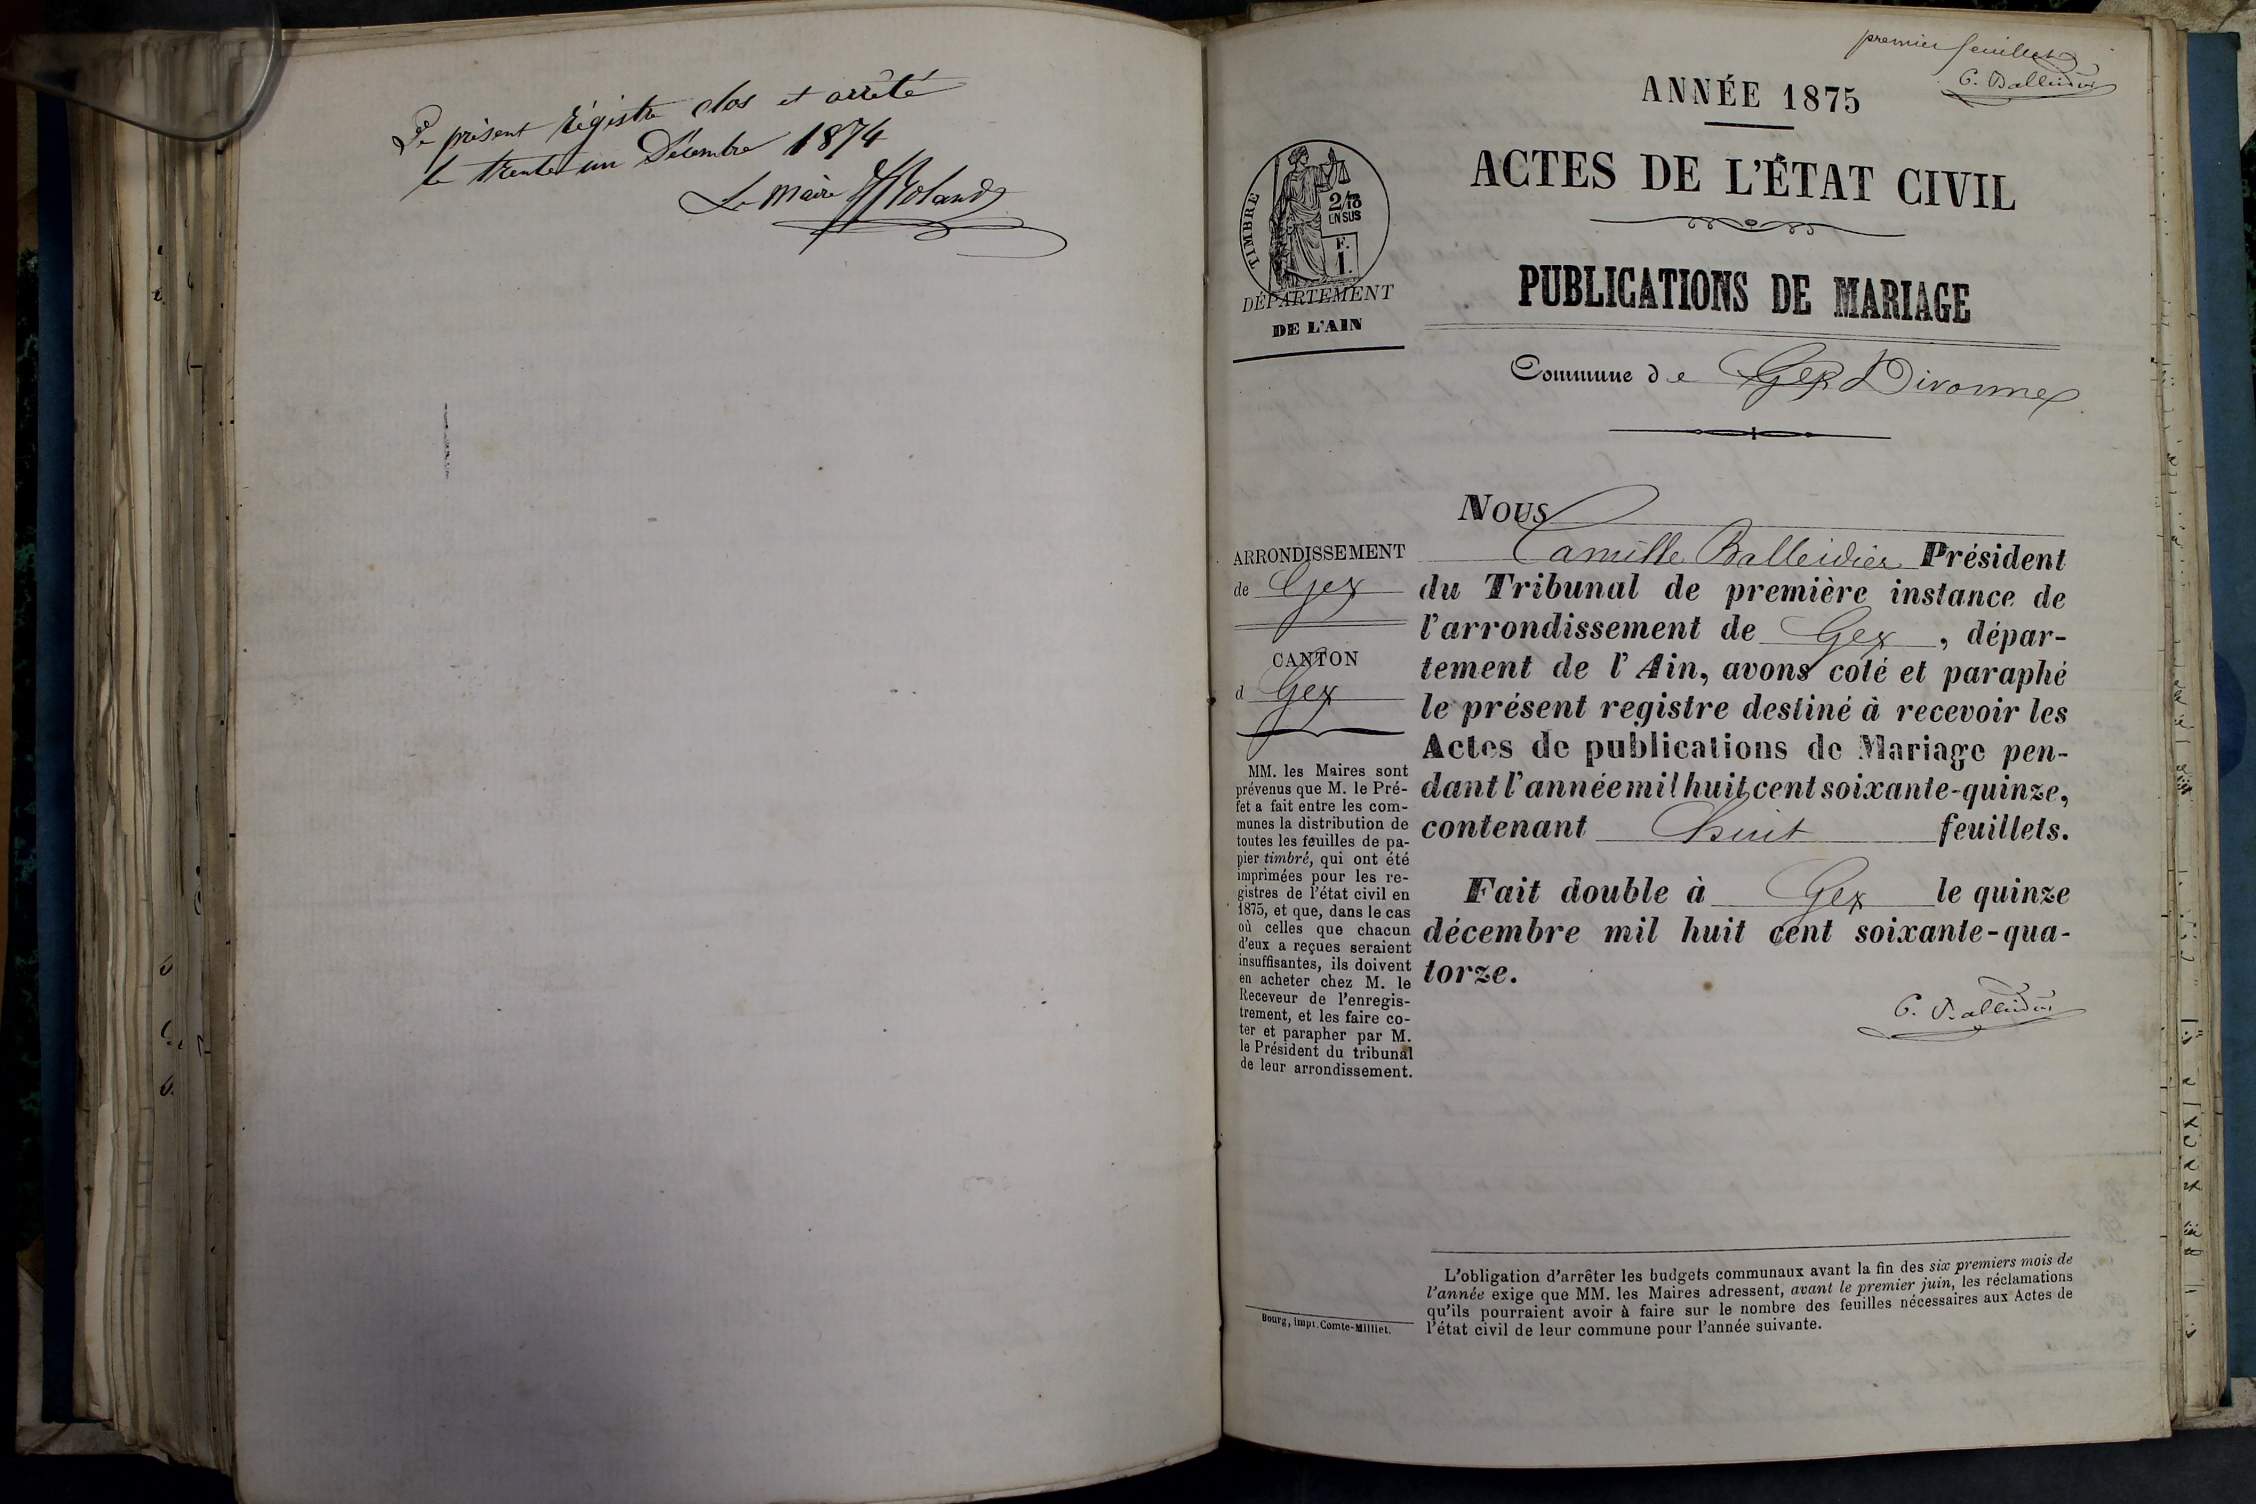 Le présent régistre clos et arrêté
le trente un Décembre 1874
Le Maire Roland
premier feuillet
C. Balleidier
ANNÉE 1875
ACTES DE L'ÉTAT CIVIL
PUBLICATIONS DE MARIAGE
Commune de Gex Divonne
TIMBRE
2/10
EN SUS
F.
1.
DÉPARTEMENT
DE L'AIN
ARRONDISSEMENT
de Gex
CANTON
d Gex
MM. les Maires sont
prévenus que M. le Pré-
fet a fait entre les com-
munes la distribution de
toutes les feuilles de pa-
pier timbré, qui ont été
imprimées pour les re-
gistres de l'état civil en
1875, et que, dans le cas
où celles que chacun
d'eux a reçues seraient
insuffisantes, ils doivent
en acheter chez M. le
Receveur de l'enregis-
trement, et les faire co-
ter et parapher par M.
le Président du tribunal
de leur arrondissement.
Bourg, impr. Comte-Milliet.
NOUS
Camille Balleidier Président
du Tribunal de première instance de
l'arrondissement de Gex, dépar-
tement de l'Ain, avons coté et paraphé
le présent registre destiné à recevoir les
Actes de publications de Mariage pen-
dant l'année mil huit cent soixante-quinze,
contenant huit feuillets.
Fait double à Gex le quinze
décembre mil huit cent soixante-qua-
torze.
C. Balleidier
L'obligation d'arrêter les budgets communaux avant la fin des six premiers mois de
l'année exige que MM. les Maires adressent, avant le premier juin, les réclamations
qu'ils pourraient avoir à faire sur le nombre des feuilles nécessaires aux Actes de
l'état civil de leur commune pour l'année suivante.